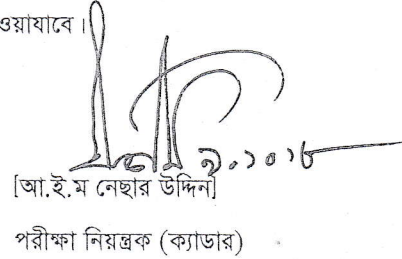 ওয়াযাবে।
৯.১০.১৮
[আ.ই.ম নেছার উদ্দিন]
পরীক্ষা নিয়ন্ত্রক (ক্যাডার)